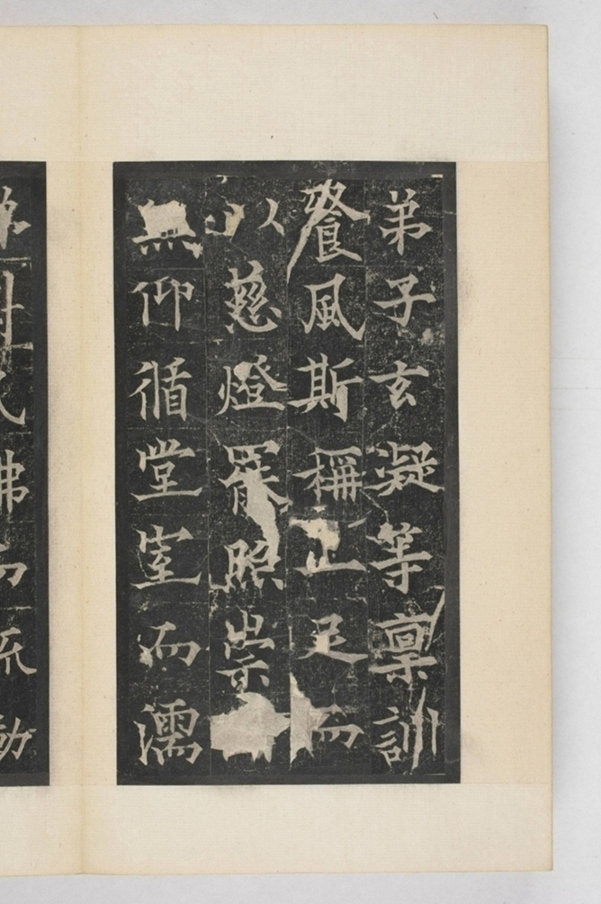 弟子玄凝等稟訓
餐風斯稱正足而
以慈燈罷照崇
無仰循堂室而濡